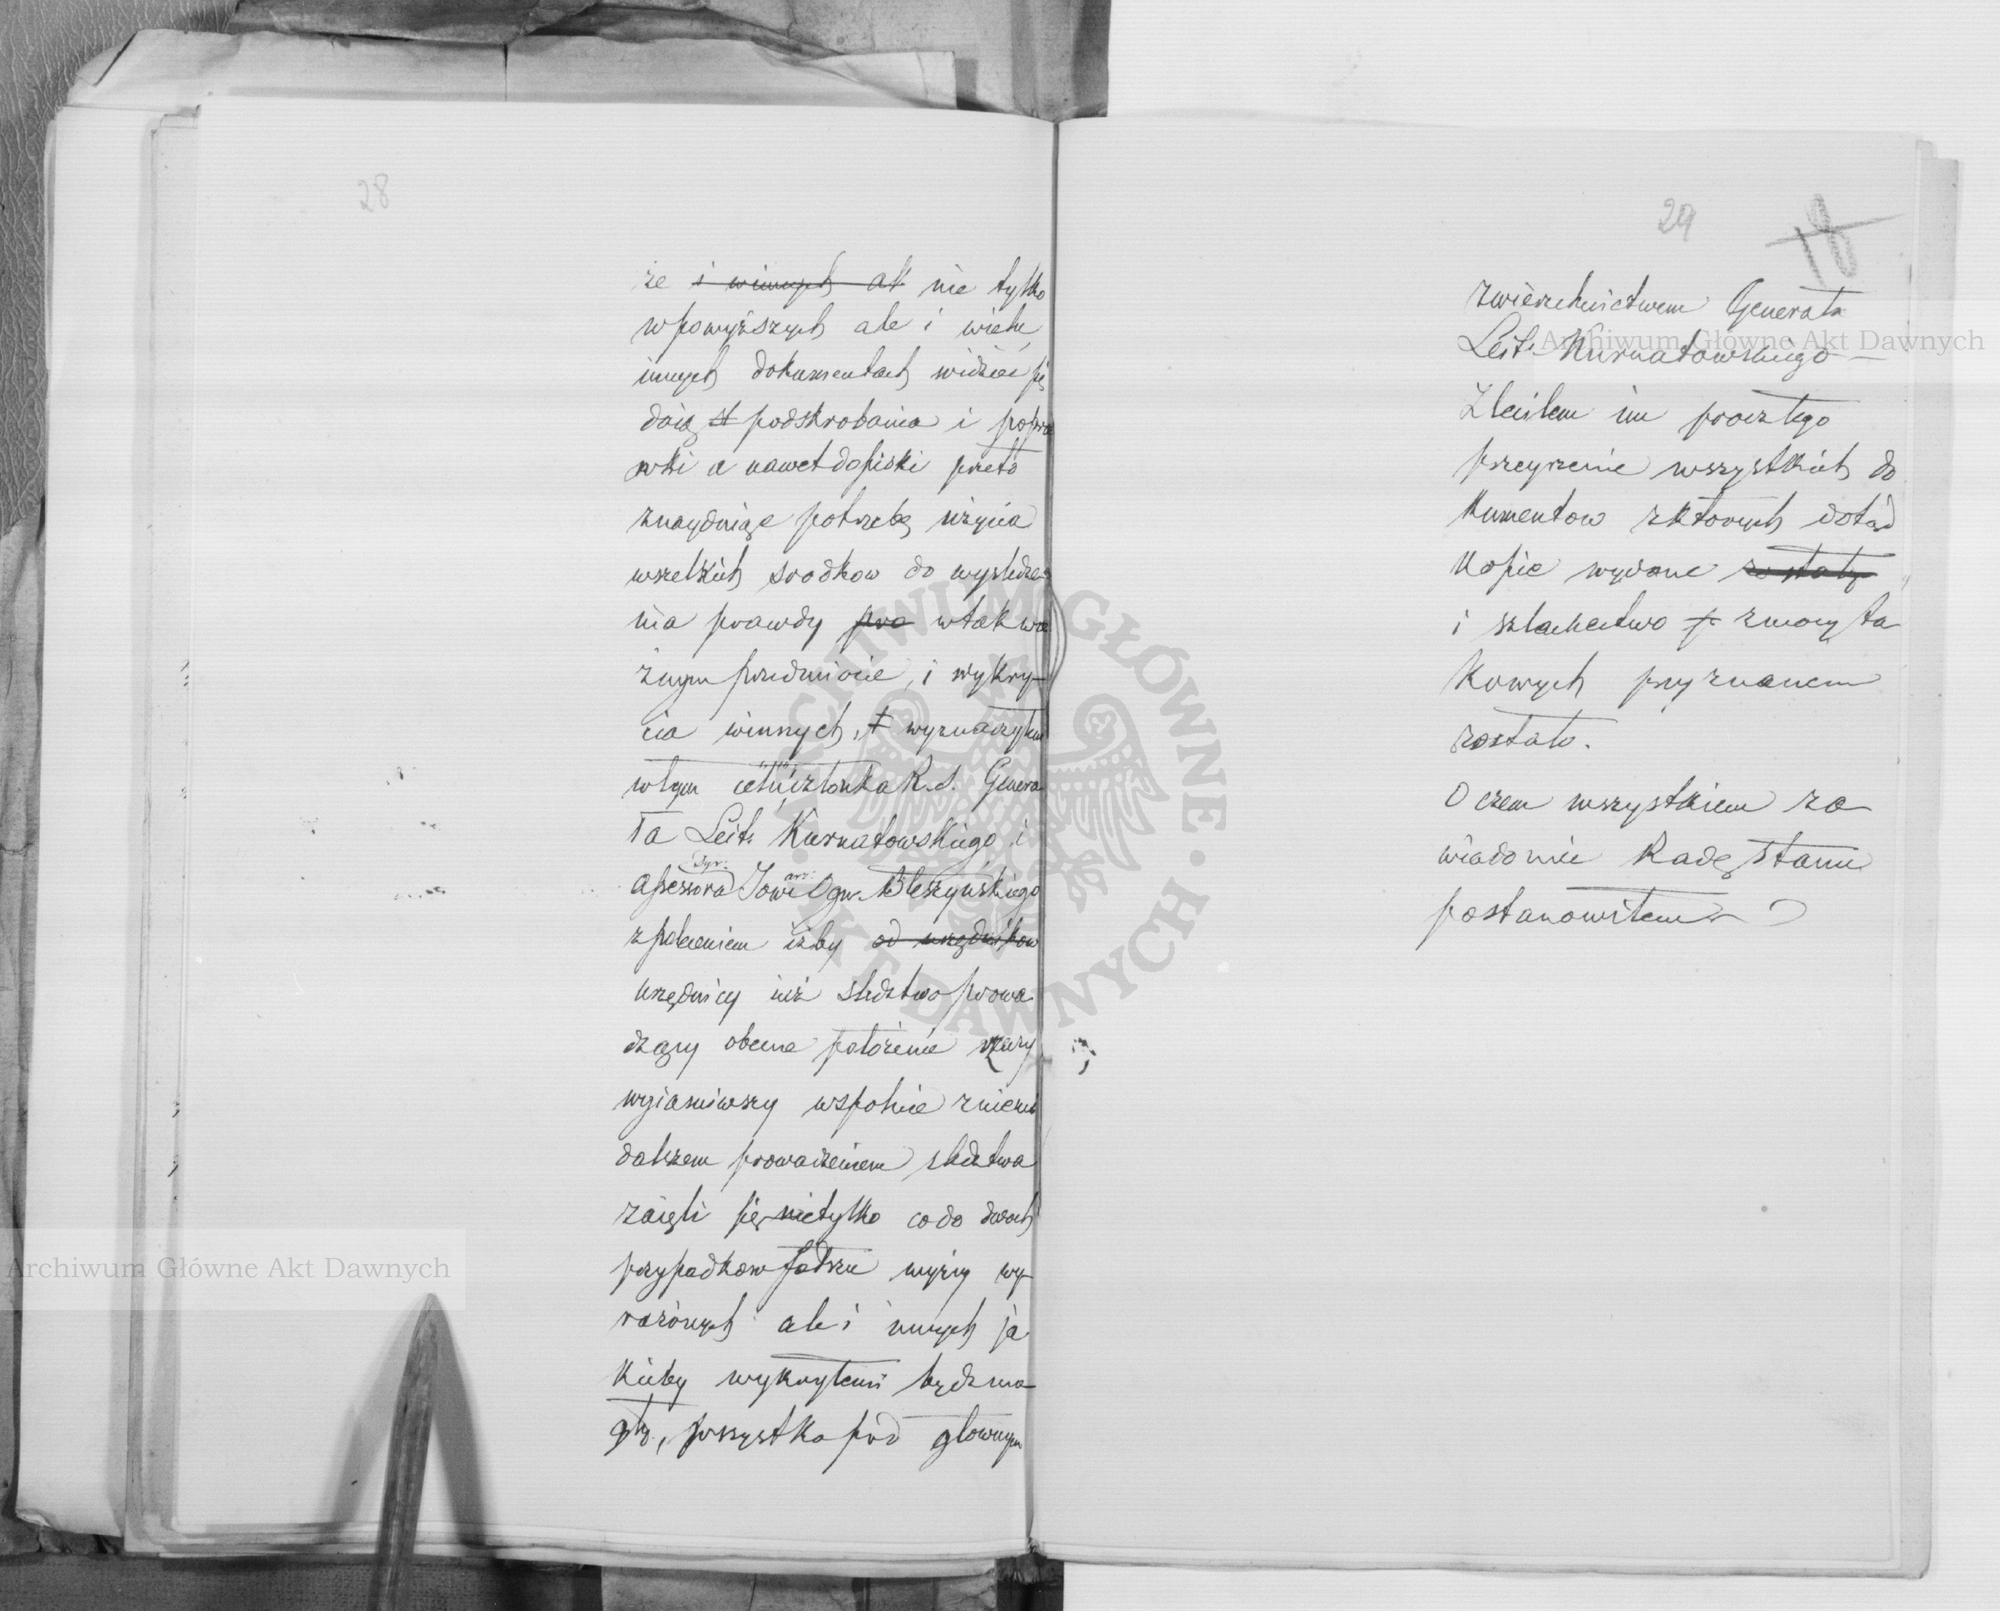 28
że i winnych ak nie tylko
w powyższych ale i wielu
innych dokumentach widzieć się
daią st podskrobania i popra
wki a nawet dopiski przeto
znayduiąc potrzebę użycia
wszelkich srodkow do wysledze
nia prawdy pra w tak wa
żnym przedmiocie, i wykry-
cia winnych, + wyznaczyłem
w tym celu członka R. S. Genera
ła Leit: Kurnatowskiego i
Assessora Dyr: Jow. arz: Ogn. Bleszyńskiego
z poleceniem iżby od urzędnikow
urzędnicy iuż sledztwo prowa
dzący obecne położenie rzeczy
wyiasniwszy wspolnie z niemi
dalszem prowadzeniem sledztwa
zaięli się nietylko co do dwoch
przypadkow fałszu wyżey wy-
rażonych ale i innych ja
kieby wykrytemi bydz mo-
gły, wszystko pod głownym
29
18
zwierzchnictwem Generała
Leit: Kurnatowskiego —
Zleciłem im procz tego
przeyrzenie wszystkich do
kumentow z ktorych dotąd
kopie wydane zostały
i szlachectwo p z mocy ta
kowych przyznanem
zostało.
O czem wszystkiem za
wiadomić Radę Stanu
postanowiłem
Archiwum Główne Akt Dawnych
Archiwum Główne Akt Dawnych
ARCHIWUM GŁÓWNE · AKT DAWNYCH ·